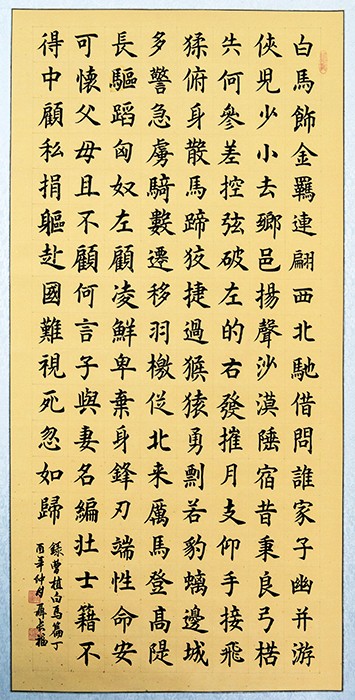 白馬飾金羈連翩西北馳借問誰家子幽并游
俠兒少小去鄉邑揚聲沙漠陲宿昔秉良弓楛
矢何參差控弦破左的右發摧月支仰手接飛
猱俯身散馬蹄狡捷過猴猿勇剽若豹螭邊城
多警急虜騎數遷移羽檄従北来厲馬登高隄
長驅蹈匈奴左顧凌鮮卑棄身鋒刃端性命安
可懷父母且不顧何言子與妻名編壯士籍不
得中顧私捐軀赴國難視死忽如歸
錄曹植白馬篇丁
酉年仲